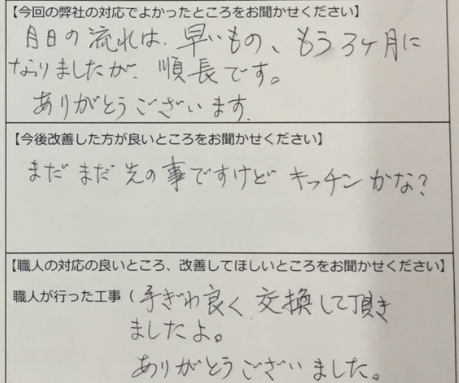 【今回の弊社の対応でよかったところをお聞かせください】
月日の流れは、早いもの、もう3ヶ月に
なりましたが、順長です。
ありがとうございます.
【今後改善した方が良いところをお聞かせください】
まだまだ先の事ですけど キッチンかな?
【職人の対応の良いところ、改善してほしいところをお聞かせください】
職人が行った工事 ( 手ぎわ良く 交換して頂き
ましたよ。
ありがとうございました。